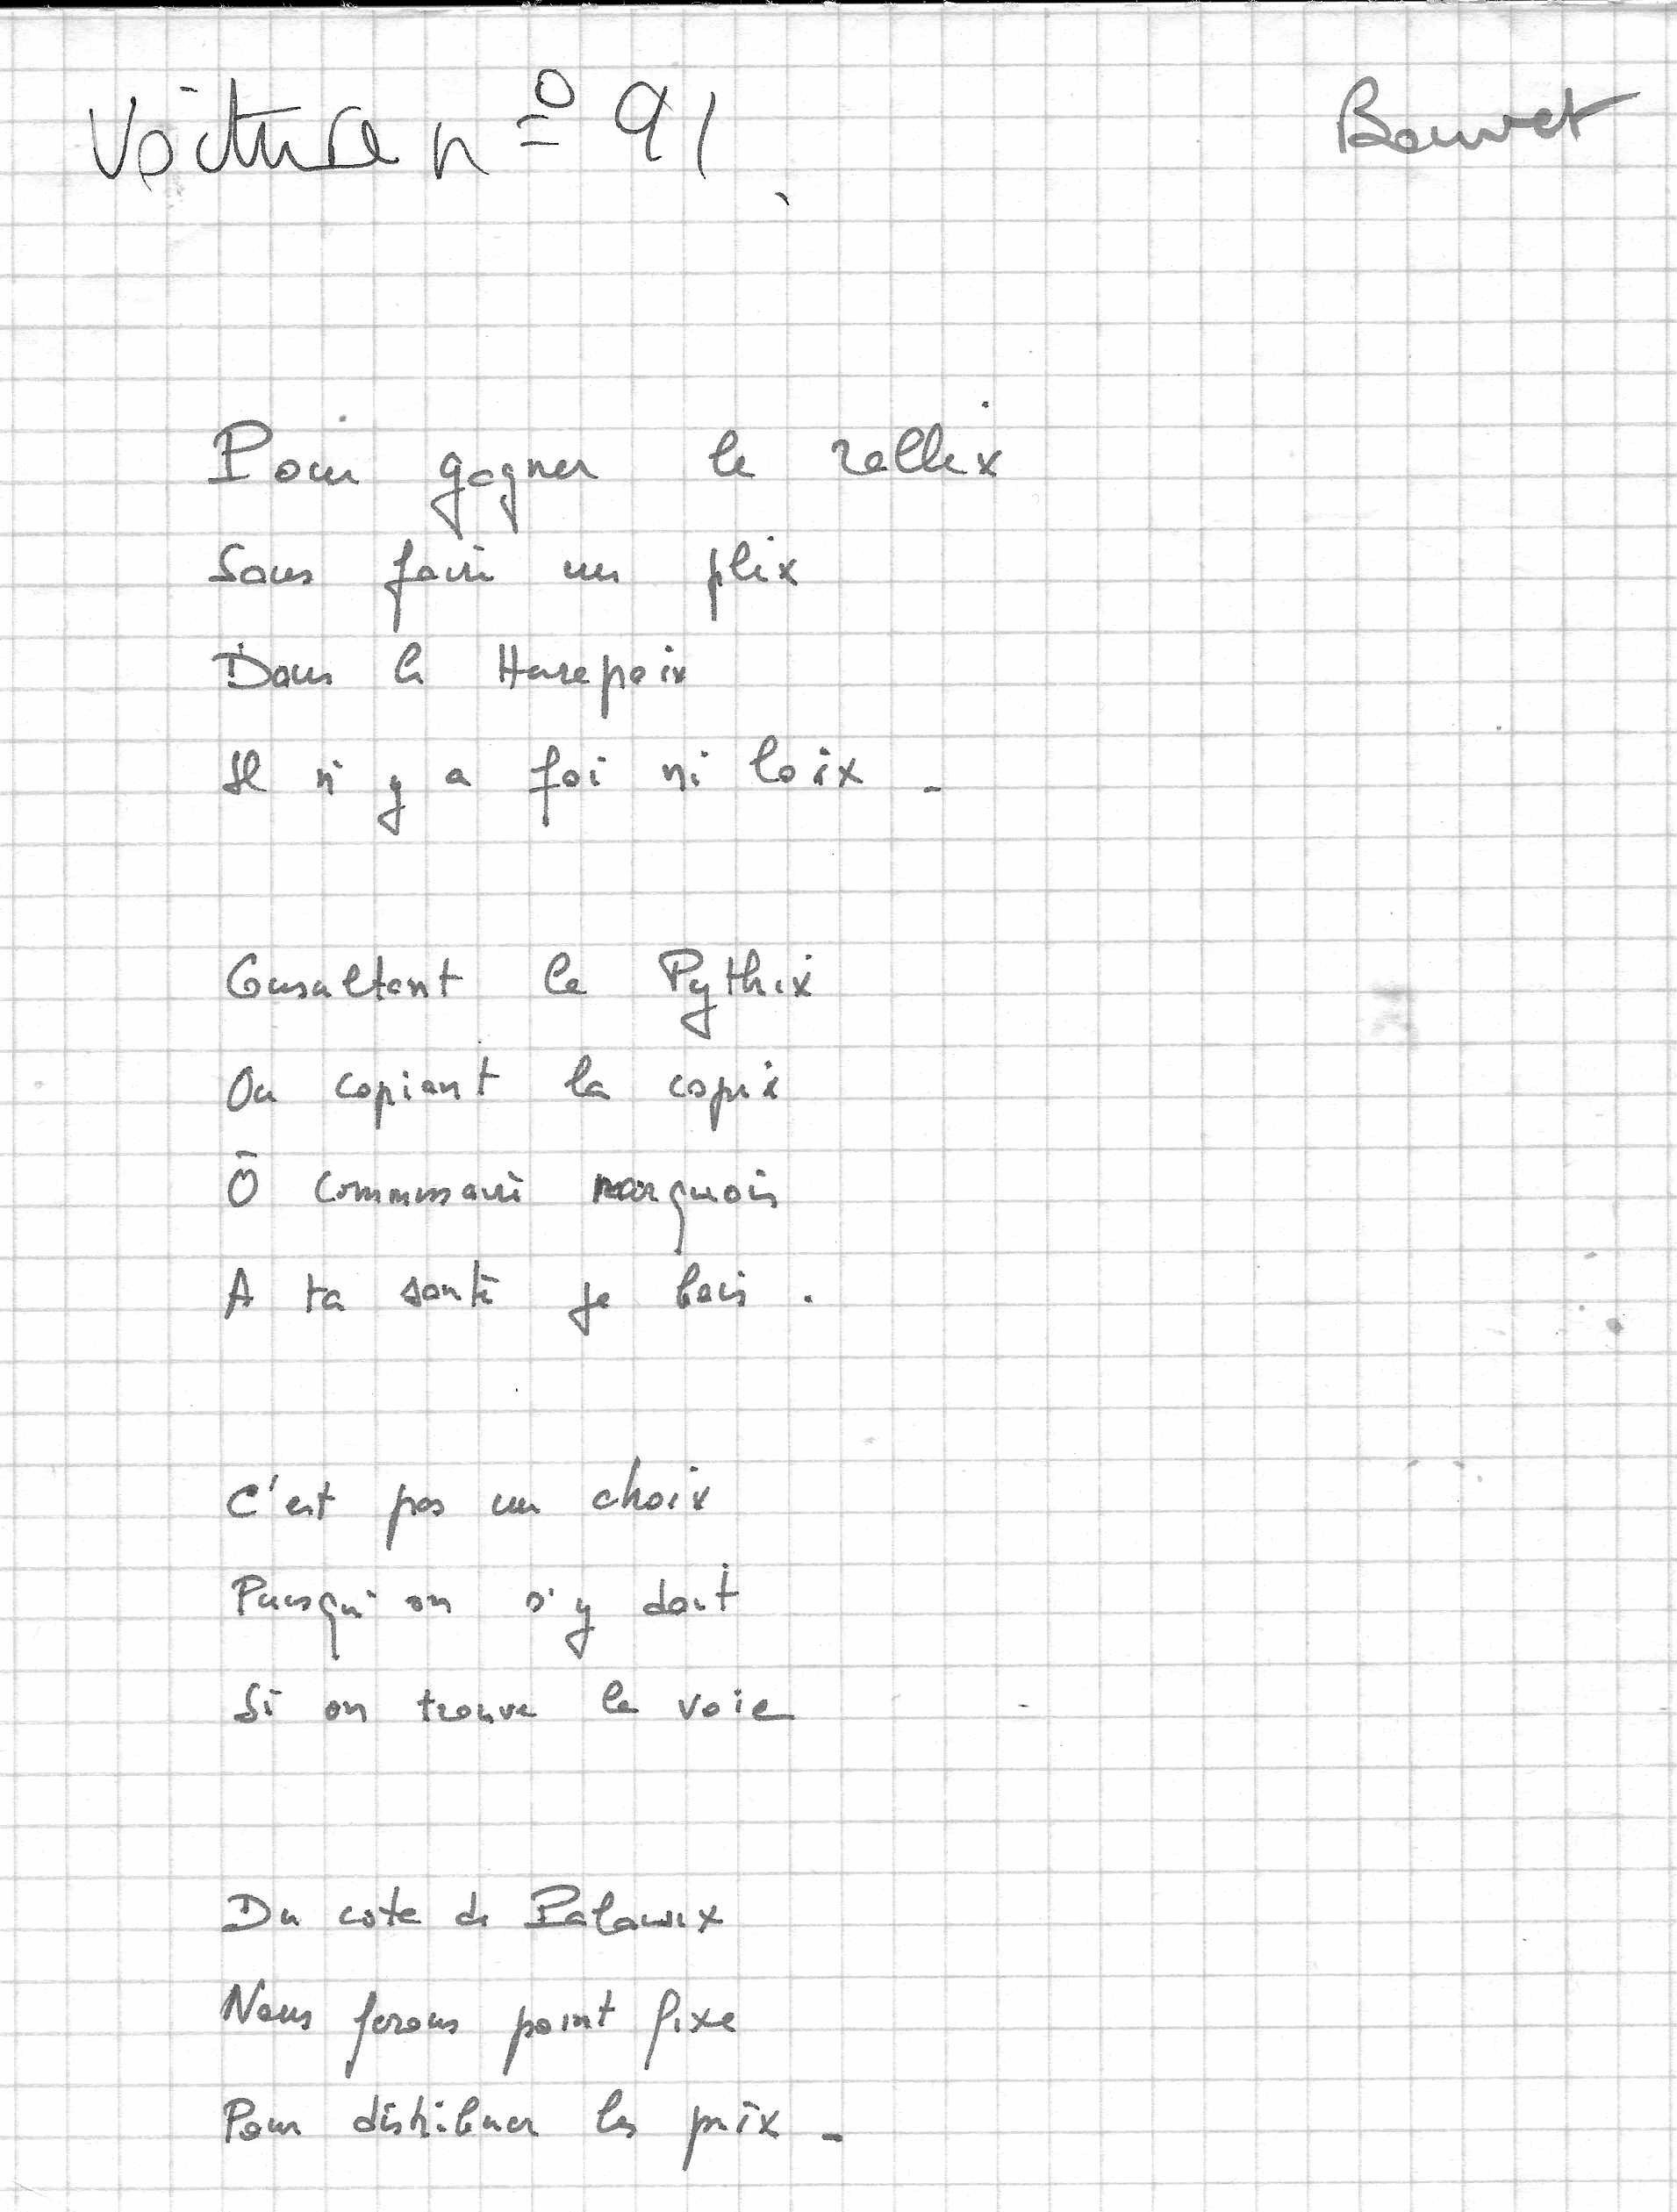 Voiture n° 91
Bouvet
Pour gagner le rallix
Sans faire un plix
Dans le Hurepoix
Il n'y a foi ni loix .
Consultant la Pythix
Ou copiant la copix
Ô commissaire narquois
A ta santé je bois .
C'est pas un choix
Puisqu'on s'y doit
Si on trouve la voie
Du coté de Palawix
Nous ferons point fixe
Pour distribuer les prix .